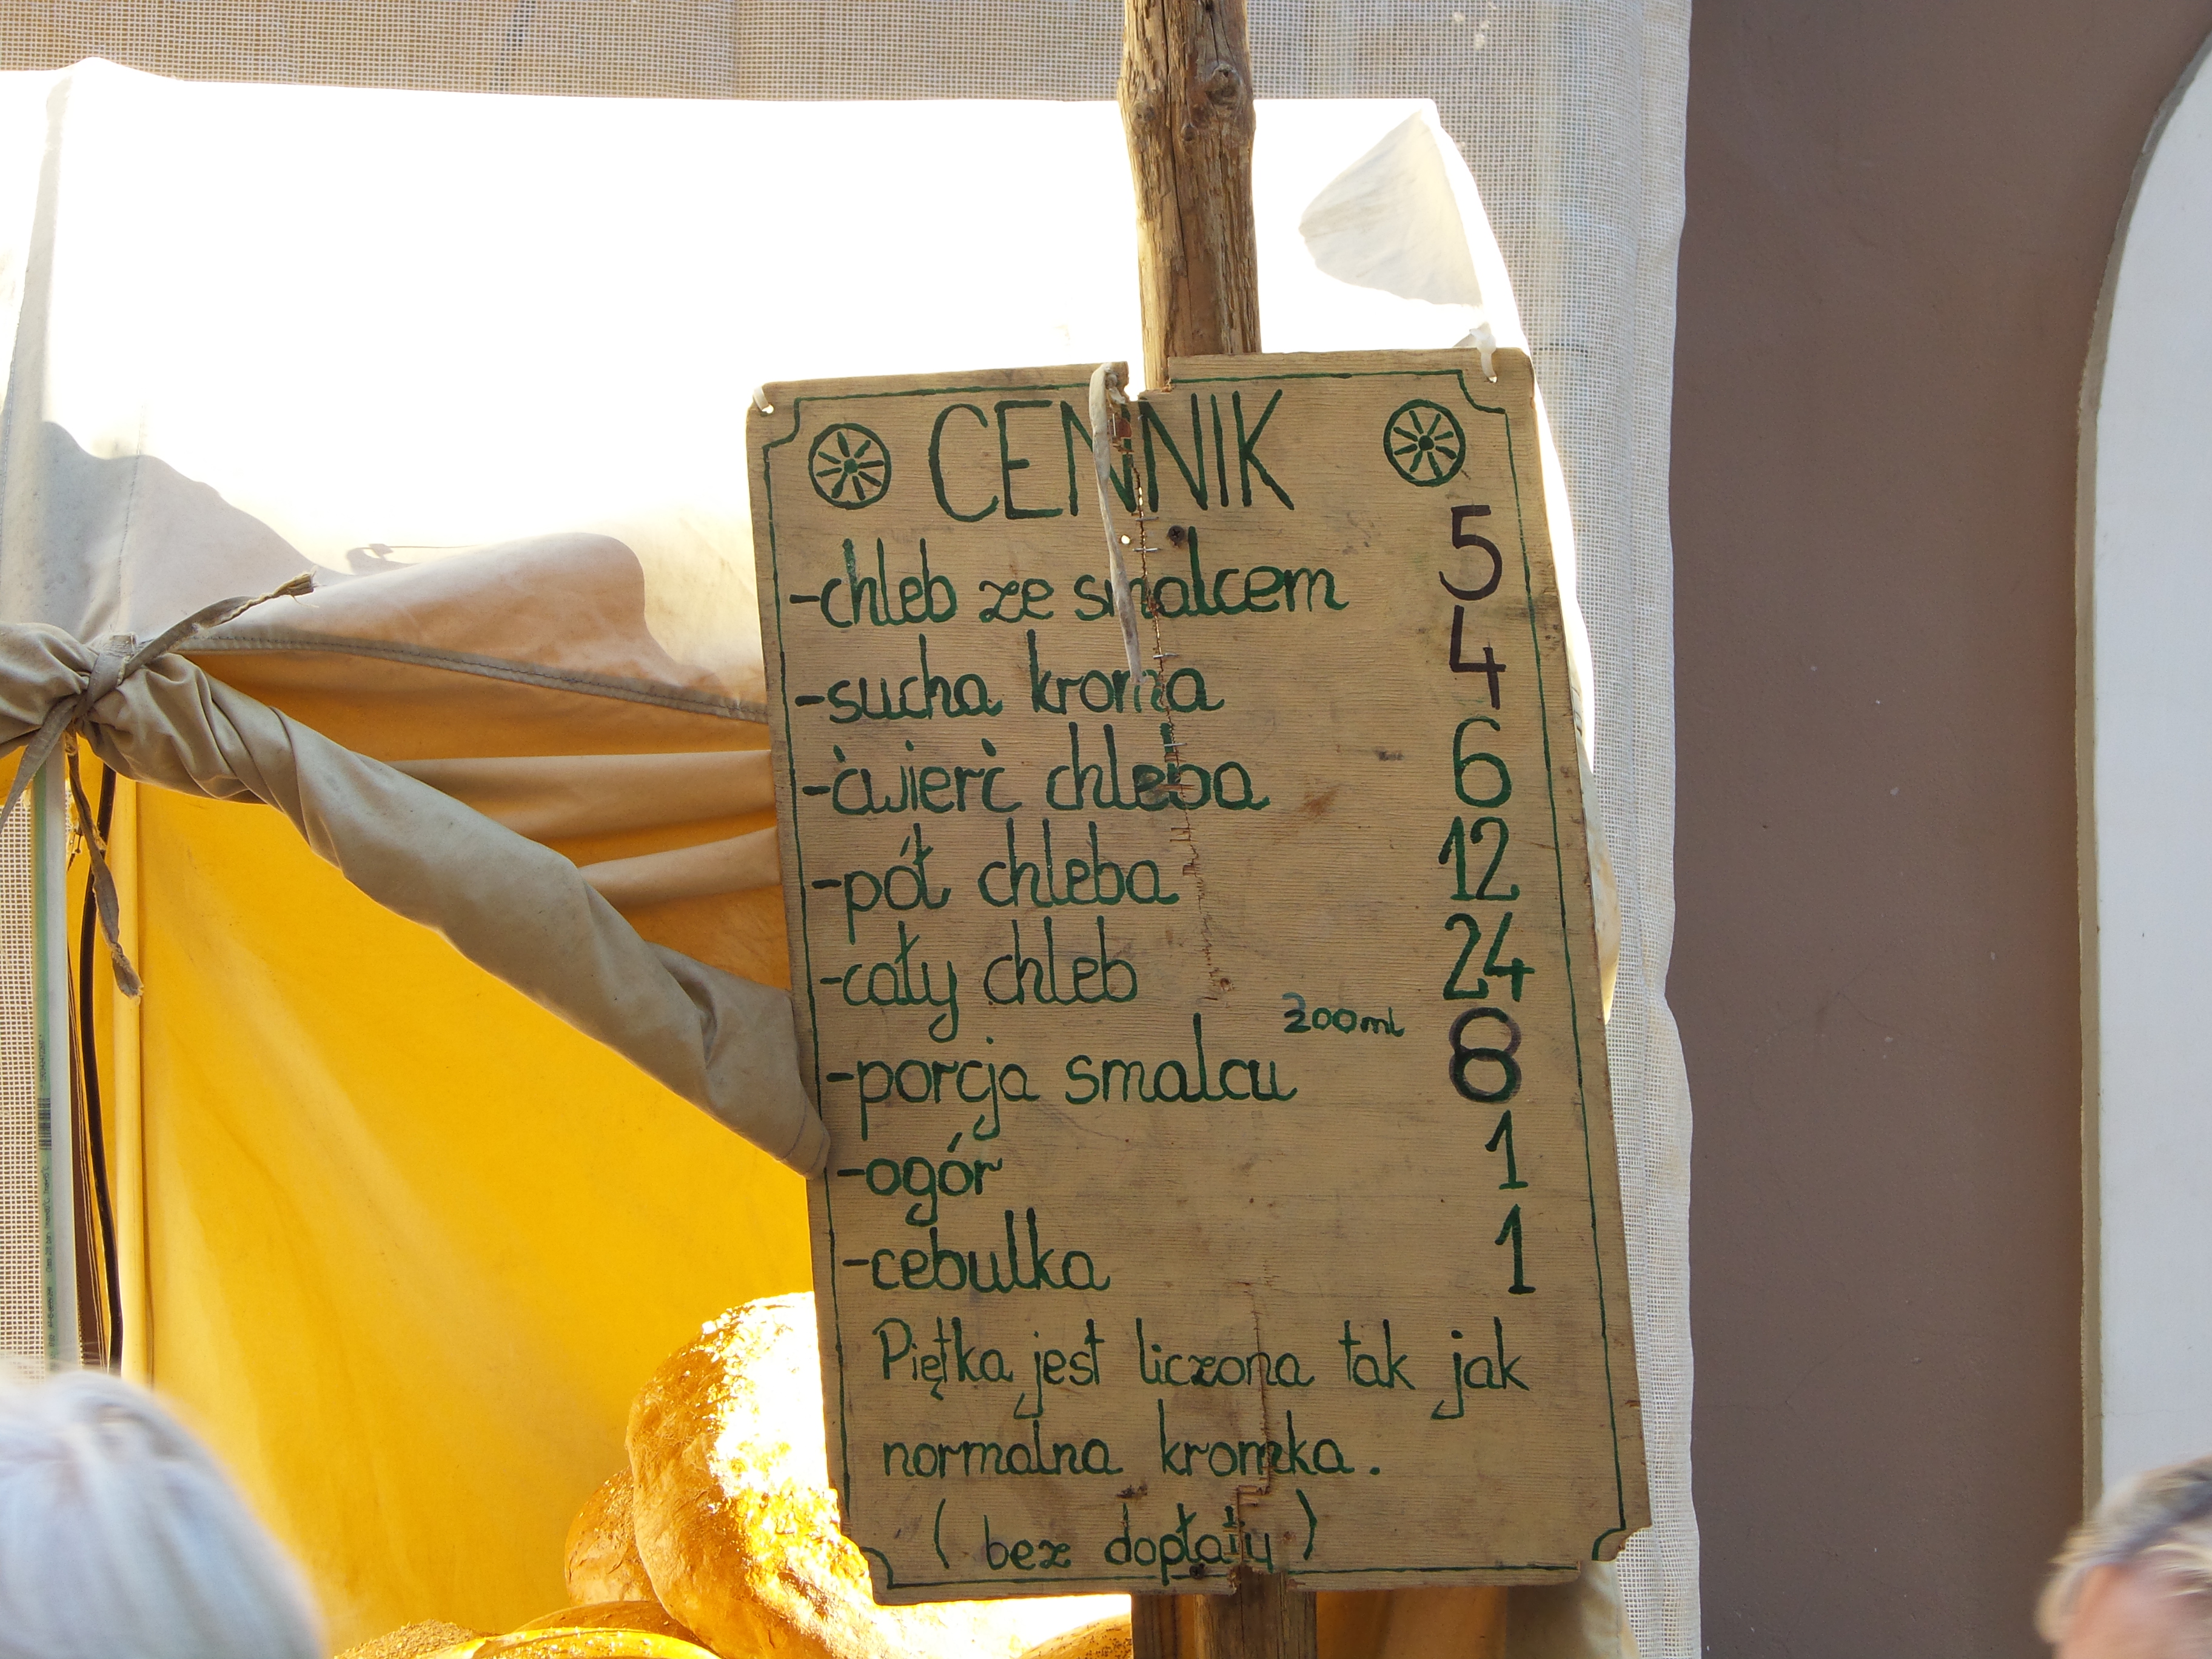 CENNIK
-chleb ze smalcem 5
-sucha kroma 4
-ćwierć chleba 6
-pół chleba 12
-cały chleb 24
-porcja smalcu 200ml 8
-ogór 1
-cebulka 1
Piętka jest liczona tak jak
normalna kromka.
(bez dopłaty)